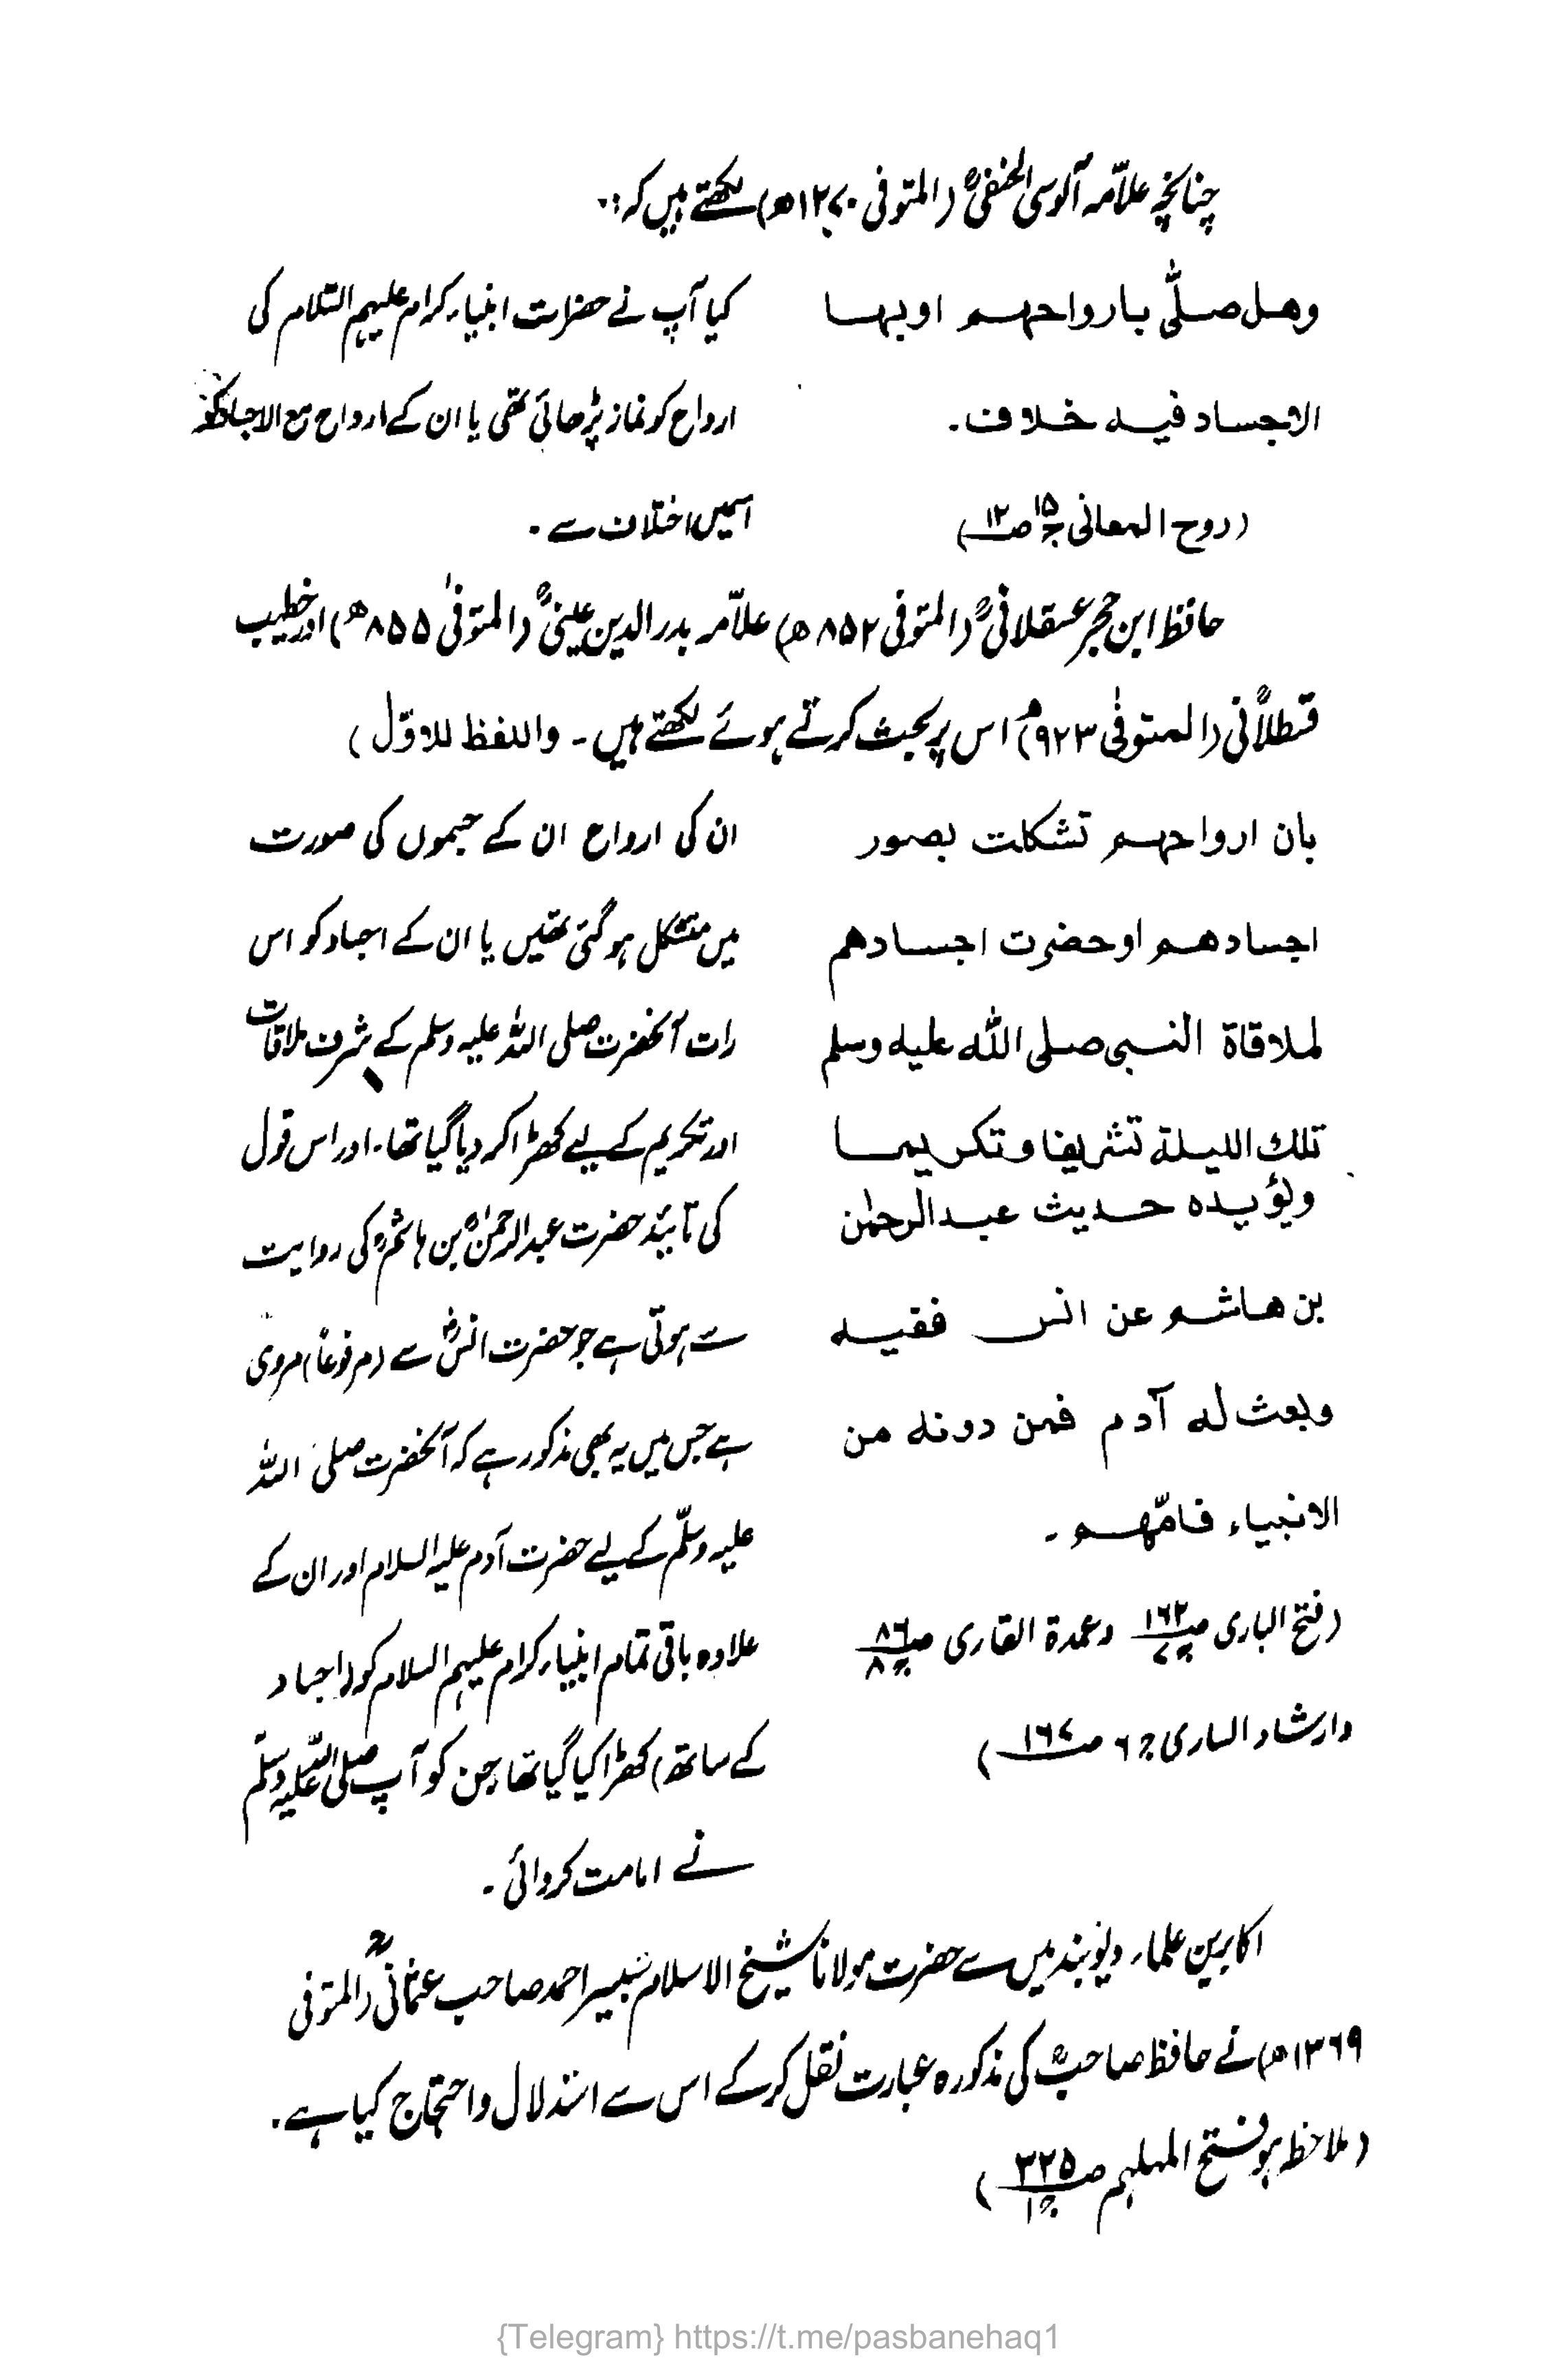 چنانچہ علامہ آلوسی الحنفیؒ (المتوفی ۱۲۷۰ھ) لکھتے ہیں کہ:۔
وهل صلّٰی بارواحهم اوبها
الاجساد فیه خلاف۔
(روح المعانی ج۱۵ ص۱۲)
کیا آپ نے حضرات انبیاء کرام علیہم السّلام کی
ارواح کو نماز پڑھائی تھی یا ان کے ارواح مع الاجساد کو
اسمیں اختلاف ہے۔
حافظ ابن حجر عسقلانیؒ (المتوفی ۸۵۲ھ) علاّمہ بدرالدین عینیؒ (المتوفیٰ ۸۵۵ھ) اور خطیب
قسطلانیؒ (المتوفیٰ ۹۲۳ھ) اس پر بحث کرتے ہوئے لکھتے ہیں۔ واللفظ للاوّل)
بان ارواحهم تشکلت بصور
اجسادهم اوحضرت اجسادهم
لملاقاة النبی صلی الله علیه وسلم
تلك اللیلة تشریفا وتکریما
ویؤیده حدیث عبدالرحمٰن
بن هاشم عن انس ففیه
وبعث له آدم فمن دونه من
الانبیاء فامّهم۔
(فتح الباری ص۱۶۲ ج۷ وعمدة القاری ص۸۶ ج۸
وارشاد الساری ج۶ ص۱۶۷)
ان کی ارواح ان کے جسموں کی صورت
میں متشکل ہوگئی تھیں یا ان کے اجساد کو اس
رات آنحضرت صلی اللہ علیہ وسلم کے شرف ملاقات
اور تکریم کے لیے کھڑا کر دیا گیا تھا۔ اور اس قول
کی تائید حضرت عبدالرحمٰنؒ بن ہاشمؒ کی روایت
سے ہوتی ہے جو حضرت انسؓ سے (مرفوعاً) مروی
ہے جس میں یہ بھی مذکور ہے کہ آنحضرت صلی اللہ
علیہ وسلّم کے لیے حضرت آدم علیہ السلام اور ان کے
علاوہ باقی تمام انبیاء کرام علیہم السلام کو (اجساد
کے ساتھ) کھڑا کیا گیا تھا جن کو آپ صلی اللہ علیہ وسلّم
نے امامت کروائی۔
اکابرین علماء دیوبند میں سے حضرت مولانا شیخ الاسلام شبیر احمد صاحب عثمانیؒ (المتوفی
۱۳۶۹ھ) نے حافظ صاحبؒ کی مذکورہ عبارت نقل کرکے اس سے استدلال واحتجاج کیا ہے۔
(ملاحظہ ہو فتح الملہم ص۳۲۵ ج۱)
{Telegram} https://t.me/pasbanehaq1